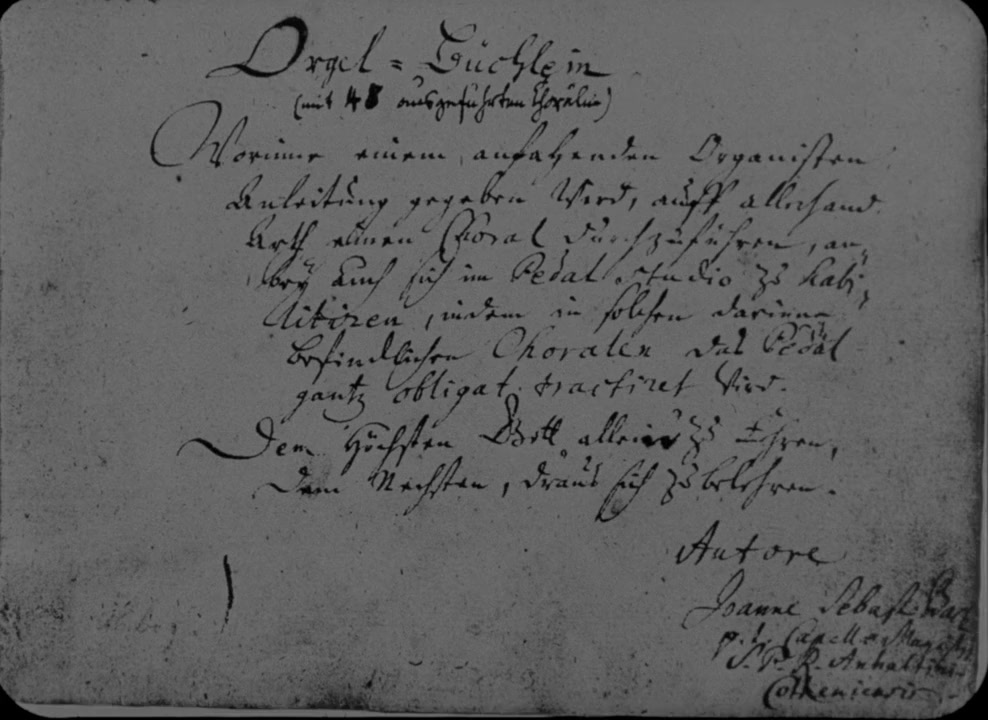 Orgel-Büchlein
(mit 48 ausgeführten Chorälen)
Worinne einem anfahenden Organisten
Anleitung gegeben wird, auff allerhand
Arth einen Choral durchzuführen, an-
bey auch sich im Pedal studio zu habi-
litiren, indem in solchen darinne
befindlichen Choralen das Pedal
gantz obligat tractiret wird.
Dem Höchsten Gott allein zu Ehren,
Dem Nechsten, draus sich zu belehren.
Autore
Joanne Sebast. Bach
p. t. Capellæ Magistri
S. P. R. Anhaltini-
Cotheniensis